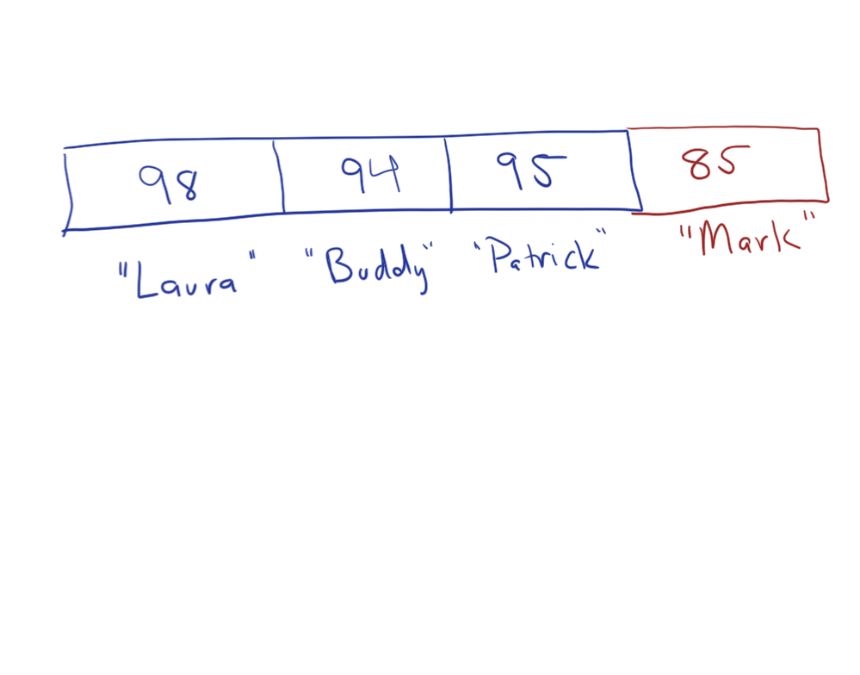 98 94 95 85
"Laura" "Buddy" "Patrick" "Mark"